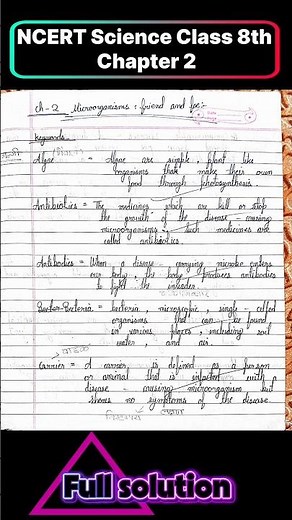 NCERT Science Class 8th
Chapter 2
Ch-2 Microorganisms : friend and foe :-
Keywords
Algae = Algae are simple, plant like
organisms that make their own
food through photosynthesis.
Antibiotics = The medicines which are kill or stop
the growth of the disease-causing
microorganisms. Such medicines are
called antibiotics
Antibodies = When a disease-carrying microbe enters
our body, the body produces antibodies
to fight the invader.
Bacteria = bacteria, microscopic, single-celled
organisms that can be found
in various places, including soil
water, and air.
Carrier = A carrier is defined as a person
or animal that is infected with
disease-causing microorganism but
shows no symptoms of the disease.
Full solution